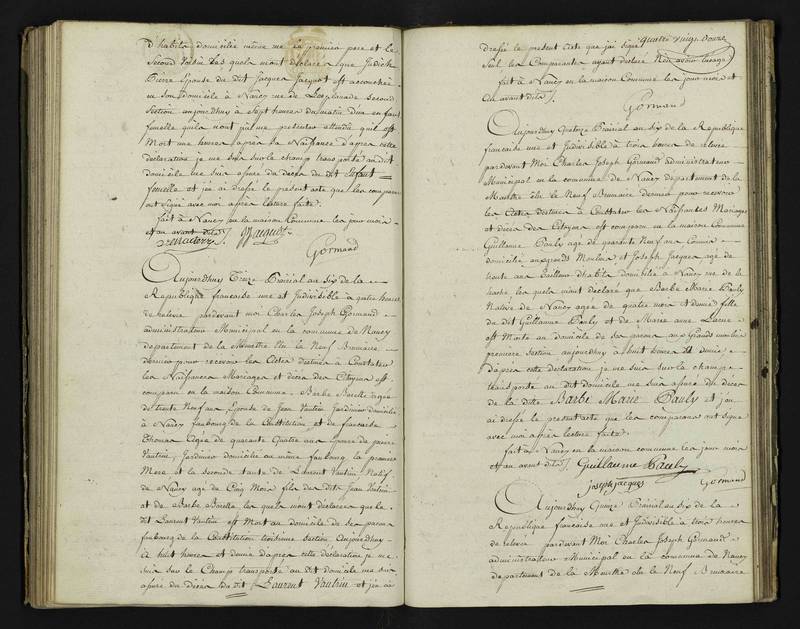 d'habits domiciliée même rue la premier pere et le
Second voisin Lesquels m'ont déclaré que Judith
Pierre Epouse du dit Jacques Jacquot est accouchée
en son domicile à Nancy rue de L'esplanade second
Section aujourdhuy à Sept heures du matin d'un enfant
femelle quils n'ont pu me presenter attendu quil est
Mort une heure après la Naissance d'apres cette
déclaration je me suis sur le champ transporté au dit
domicile me suis assuré du décès du dit Enfant
femelle et j'ai dressé le present acte que les comparans
ont signé avec moi après lecture faite.
fait à Nancy en la maison Commune les jour mois
et an avant dits.
Jacquot
Gormand
Aujourdhuy Treize Prairial an six de la
Republique française une et Indivisible à quatre heures
de relevée pardevant moi Charles Joseph Gormand
administrateur Municipal en la commune de Nancy
departement de la Meurthe élu le Neuf Brumaire
dernier pour recevoir les Actes destinés à Constater
les Naissances Mariages et décès des Citoyens est
comparu en la maison Commune Barbe Barelle agée
de trente Neuf ans Epouse de Jean Vautrin Jardinier domicilié
à Nancy faubourg de la Constitution et de francoise
Thouan Agée de quarante Quatre ans Epouse de pierre
Vautrin, Jardinier domicilié au même faubourg la premiere
Mere et la seconde tante de Laurent Vautrin Natif
de Nancy agé de Cinq Mois fils du dit Jean Vautrin
et de Barbe Barelle les quels m'ont déclaré que le
dit Laurent Vautrin est Mort au domicile de ses parens
faubourg de la Constitution troisieme section Aujourdhuy
à huit heures et demie d'apres cette déclaration je me
suis sur le Champ transporté au dit domicile me suis
assuré du décès du dit Laurent Vautrin et j'en ai
quatre vingt Douze
dressé le present Acte que j'ai signé
Seul les Comparantes ayant déclaré Ne n'avoir l'usage
fait à Nancy en la maison Commune les jour mois et
an avant dits.
Gormand
Aujourdhuy Quatorze Prairial an six de la Republique
francaise une et Indivisible à trois heures de relevée
pardevant Moi Charles Joseph Gormand administrateur
Municipal en la commune de Nancy departement de la
Meurthe élu le Neuf Brumaire dernier pour recevoir
les Actes destinés à Constater les Naissances Mariages
et décès des Citoyens est comparu en la maison Commune
Guillaume Pauly agé de quarante Neuf ans
domicilié aux grands Moulins et Joseph Jacques agé de
trente ans Tailleur d'habits domicilié à Nancy rue de la
hache les quels m'ont déclaré que Barbe Marie Pauly
Native de Nancy agée de quatre mois et demie fille
du dit Guillaume Pauly et de Marie anne Larue
est Morte au domicile de ses parens aux Grands moulins
premiere Section aujourdhuy à huit heures et demie
d'après cette déclaration je me suis sur le champ
transporté au dit domicile me suis assuré du décès
de la ditte Barbe Marie Pauly et j'en
ai dressé le present acte que les comparans ont signé
avec moi après lecture faite.
fait à Nancy en la maison commune les jour mois
et an avant dits. Guillaume Pauly
joseph jacques Gormand
Aujourdhuy Quinze Prairial an six de la
Republique française une et Indivisible à trois heures
de relevée pardevant Moi Charles Joseph Gormand
administrateur Municipal en la commune de Nancy
departement de la Meurthe élu le Neuf Brumaire